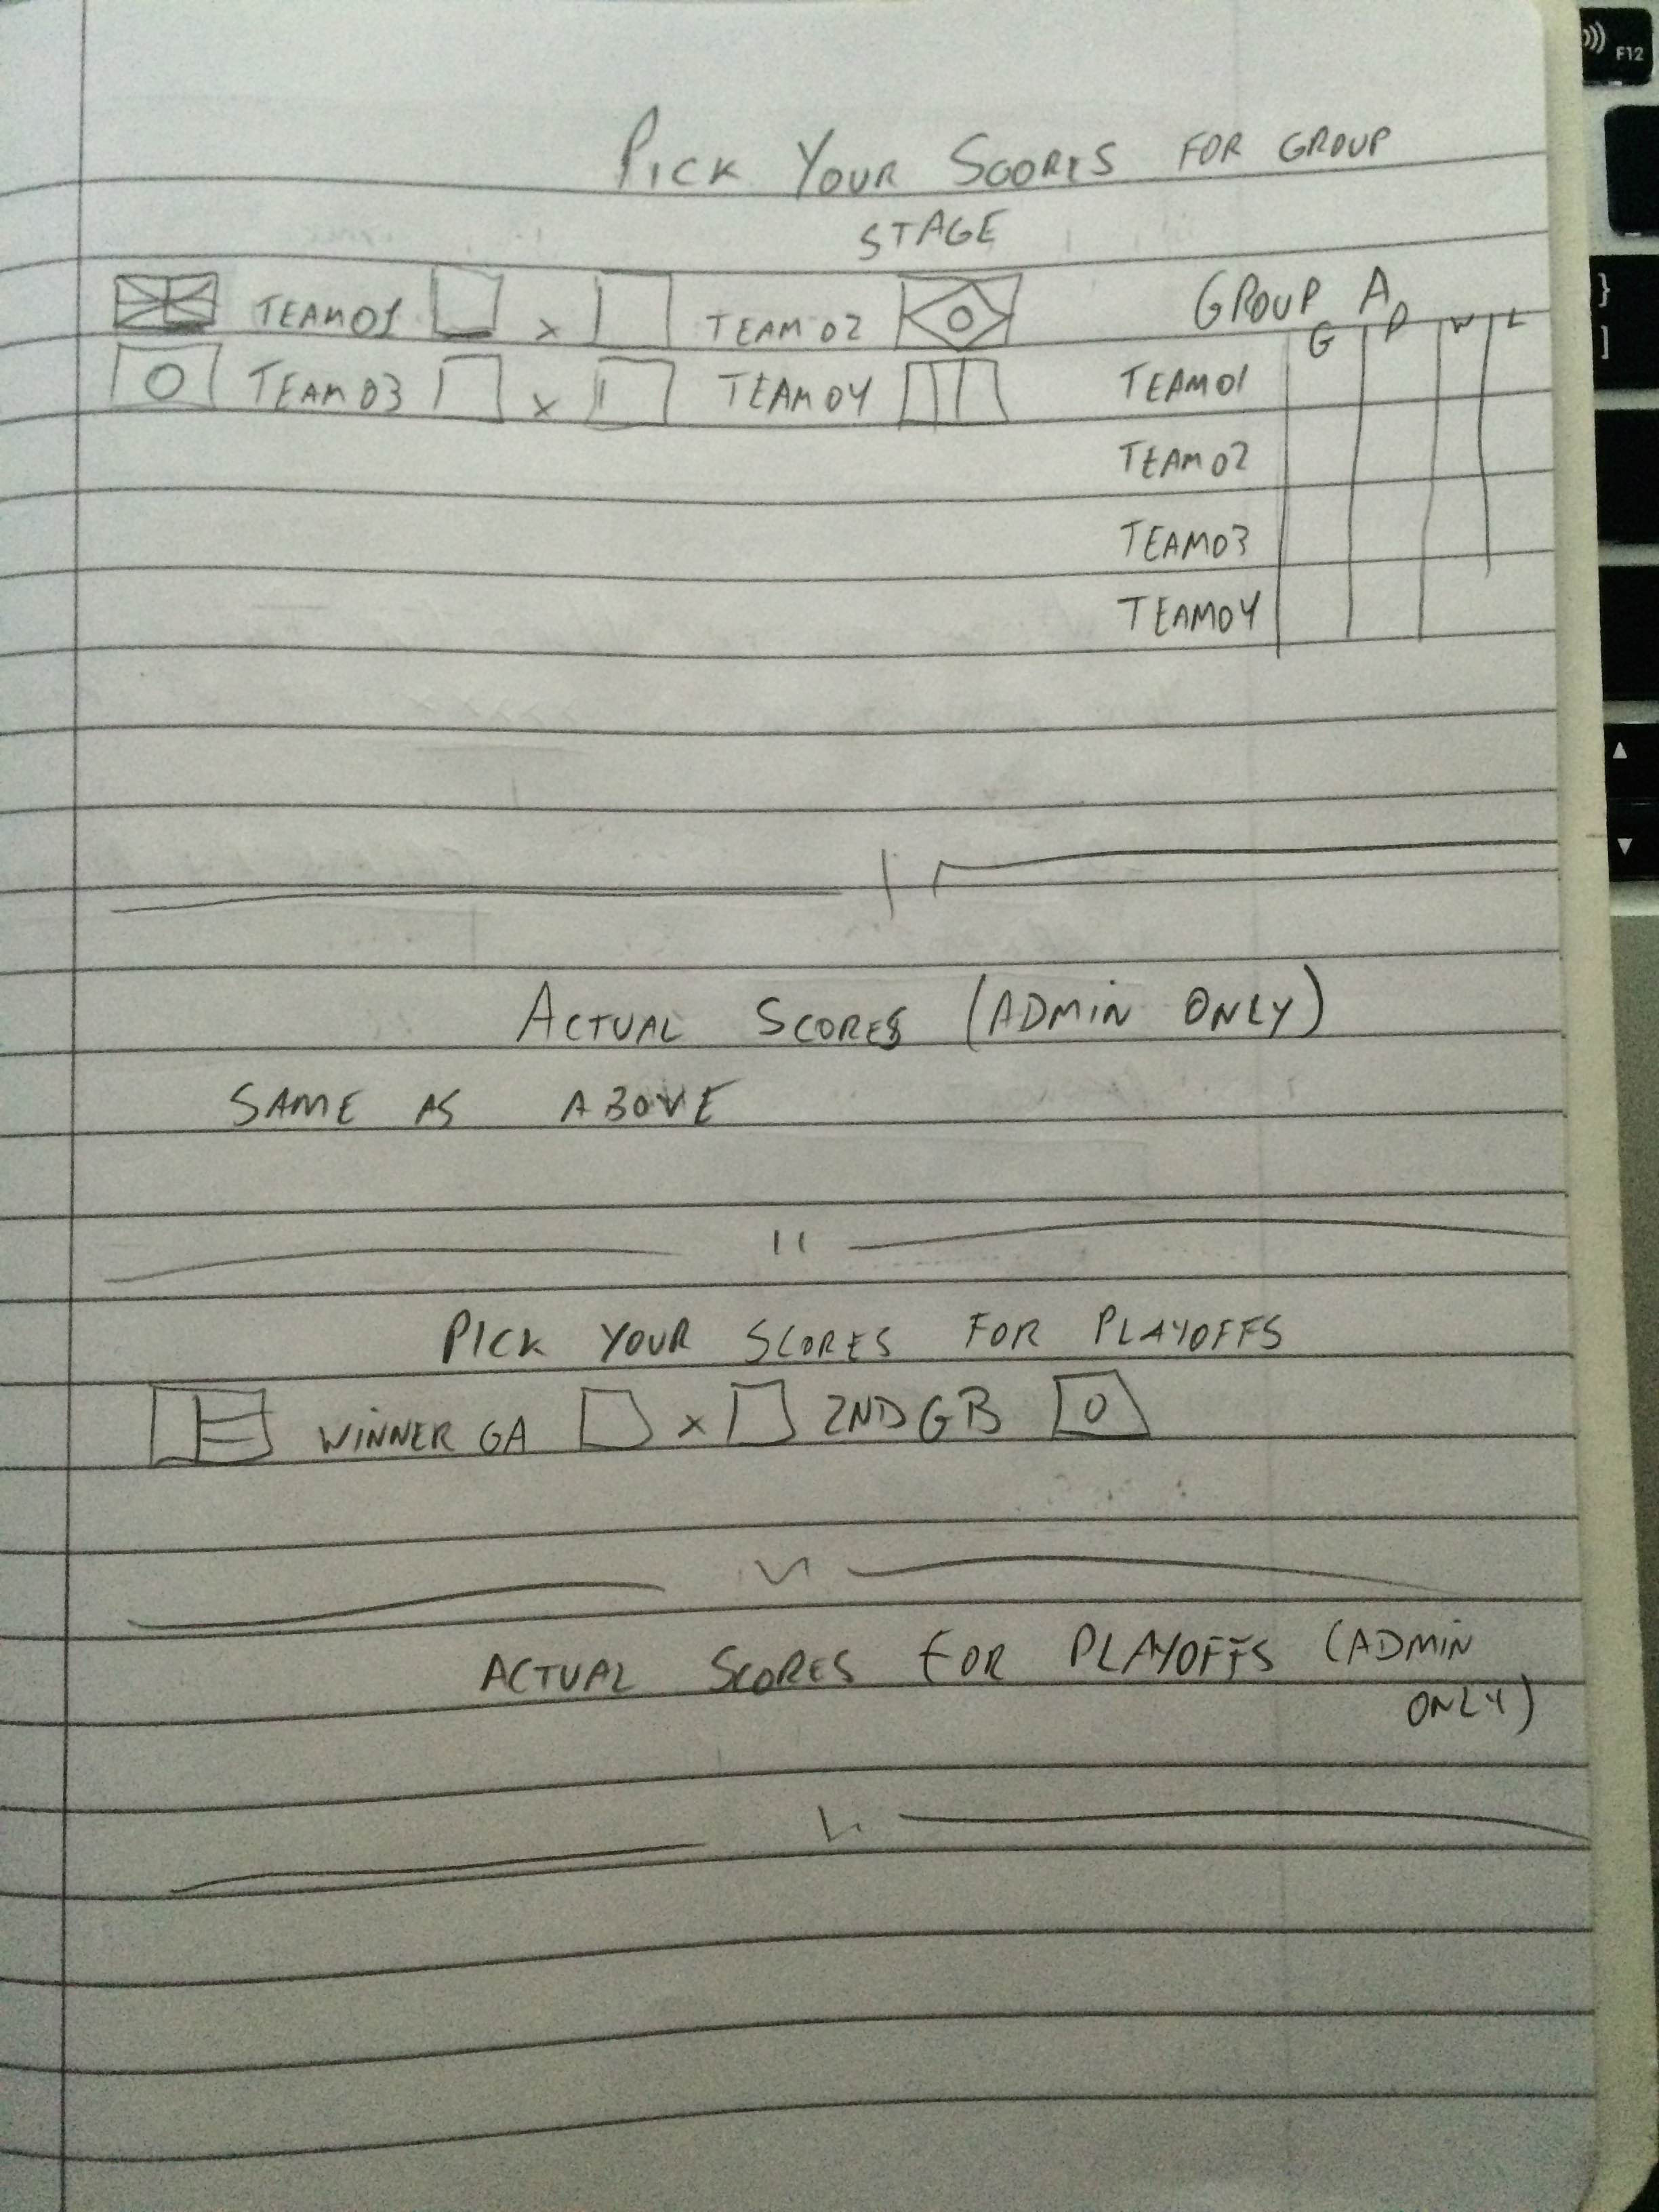 PICK YOUR SCORES FOR GROUP
STAGE
TEAM01 x TEAM02
TEAM03 x TEAM04
GROUP A
G P W L
TEAM01
TEAM02
TEAM03
TEAM04
ACTUAL SCORES (ADMIN ONLY)
SAME AS ABOVE
PICK YOUR SCORES FOR PLAYOFFS
WINNER GA x 2ND GB
ACTUAL SCORES FOR PLAYOFFS (ADMIN
ONLY)
F12
}
]